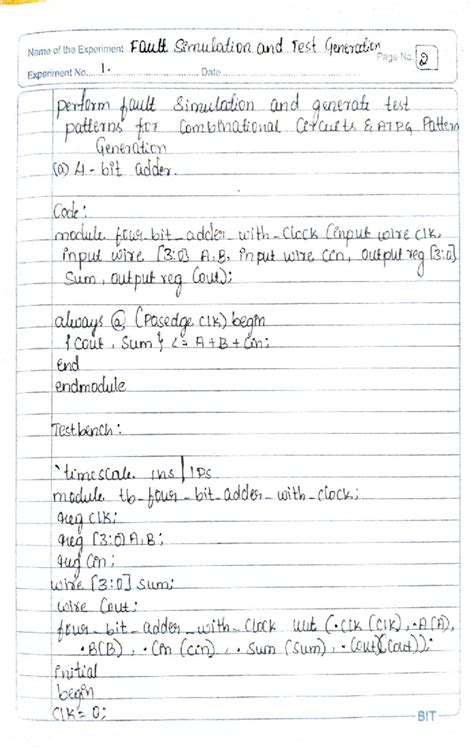 Name of the Experiment Fault Simulation and Test Generation
Page No. 2
Experiment No. 1. Date
perform fault Simulation and generate test
patterns for Combinational Circuits & ATPG Pattern
Generation
(a) 4-bit adder.
Code:
module four_bit_adder_with_Clock (input wire clk,
input wire [3:0] A,B, input wire cin, output reg [3:0]
Sum, output reg Cout);
always @ (Posedge clk) begin
{Cout, Sum} <= A+B+Cin;
end
endmodule
Testbench:
`timescale 1ns/1Ps
module tb_four_bit_adder_with_clock;
reg clk;
reg [3:0] A,B;
reg Cin;
wire [3:0] Sum;
wire Cout;
four_bit_adder_with_Clock uut (.clk (clk), .A(A),
.B(B), .Cin (cin), .Sum (Sum), .Cout(Cout));
initial
begin
Clk = 0;
BIT